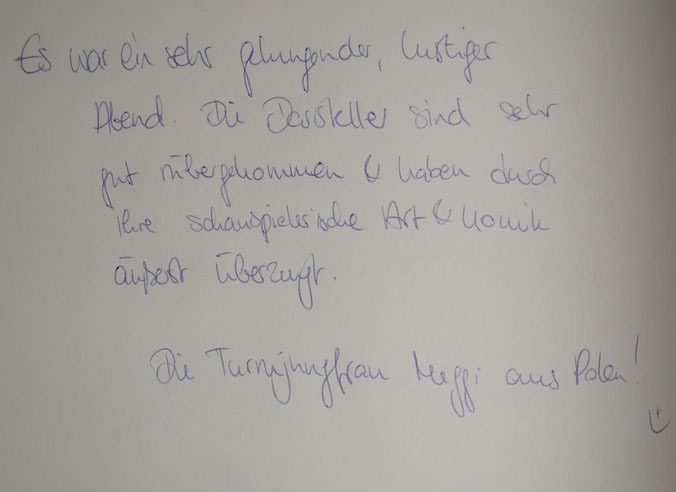 Es war ein sehr gelungender, lustiger
Abend. Die Darsteller sind sehr
gut rübergekommen & haben durch
ihre schauspielerische Art & Komik
äußerst überzeugt.
Die Turmjungfrau Meggi aus Polen!